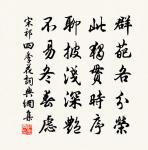 群葩各分榮
此獨貫時序
聊披淺深艷
不易冬春慮
宋祁 四季花 詞典網集